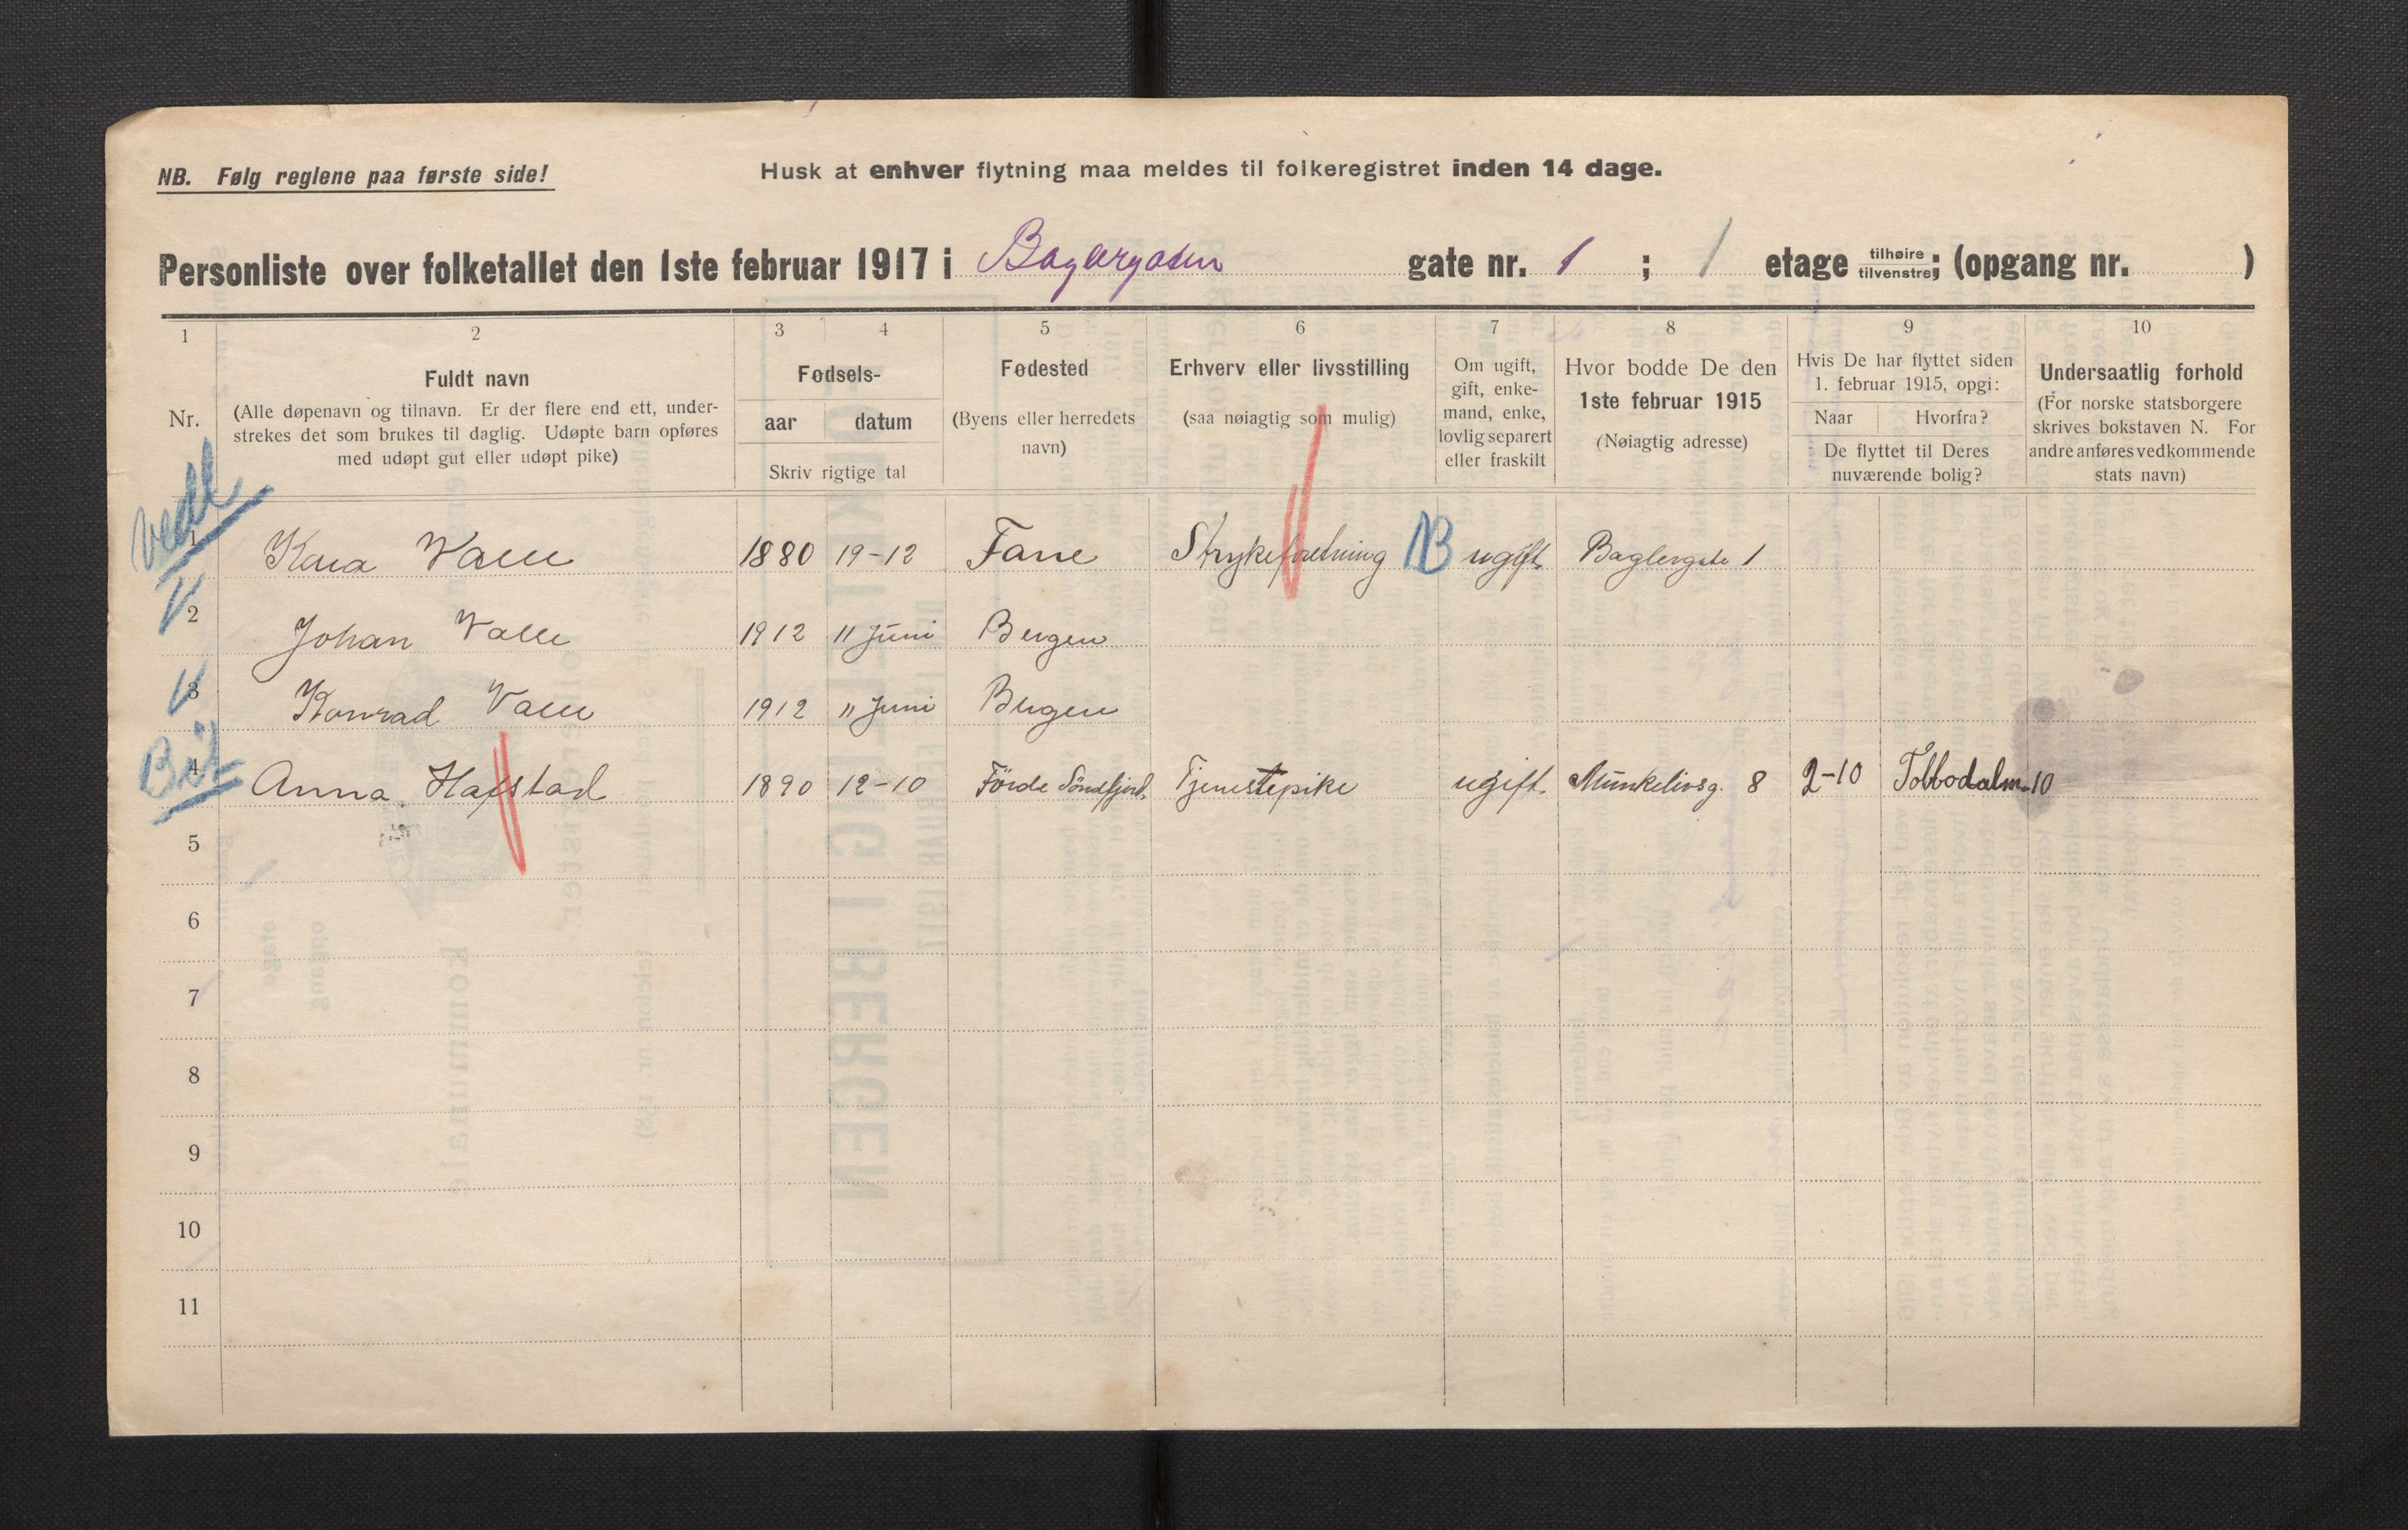 NB. Følg reglene paa første side!
Husk at enhver flytning maa meldes til folkeregistret inden 14 dage.
Personliste over folketallet den 1ste februar 1917 i Baglergaten gate nr. 1 ; 1 etage tilhøire tilvenstre; (opgang nr. )
1 2 3 4 5 6 7 8 9 10
Nr.
Fuldt navn
(Alle døpenavn og tilnavn. Er der flere end ett, under-
strekes det som brukes til daglig. Udøpte barn opføres
med udøpt gut eller udøpt pike)
Fødsels-
aar datum
Skriv rigtige tal
Fødested
(Byens eller herredets
navn)
Erhverv eller livsstilling
(saa nøiagtig som mulig)
Om ugift,
gift, enke-
mand, enke,
lovlig separert
eller fraskilt
Hvor bodde De den
1ste februar 1915
(Nøiagtig adresse)
Hvis De har flyttet siden
1. februar 1915, opgi:
Naar Hvorfra?
De flyttet til Deres
nuværende bolig?
Undersaatlig forhold
(For norske statsborgere
skrives bokstaven N. For
andre anføres vedkommende
stats navn)
1 Valle 1880 19-12 Fane Strykeforretning NB ugift Baglergate 1
2 Johan Valle 1912 11 Juni Bergen
3 Konrad Valle 1912 11 Juni Bergen
4 Anna Hafstad 1890 12-10 Förde Söndfjord Tjenestepike ugift Munkelivsg. 8 2-10 Tolbodalm. 10
5
6
7
8
9
10
11